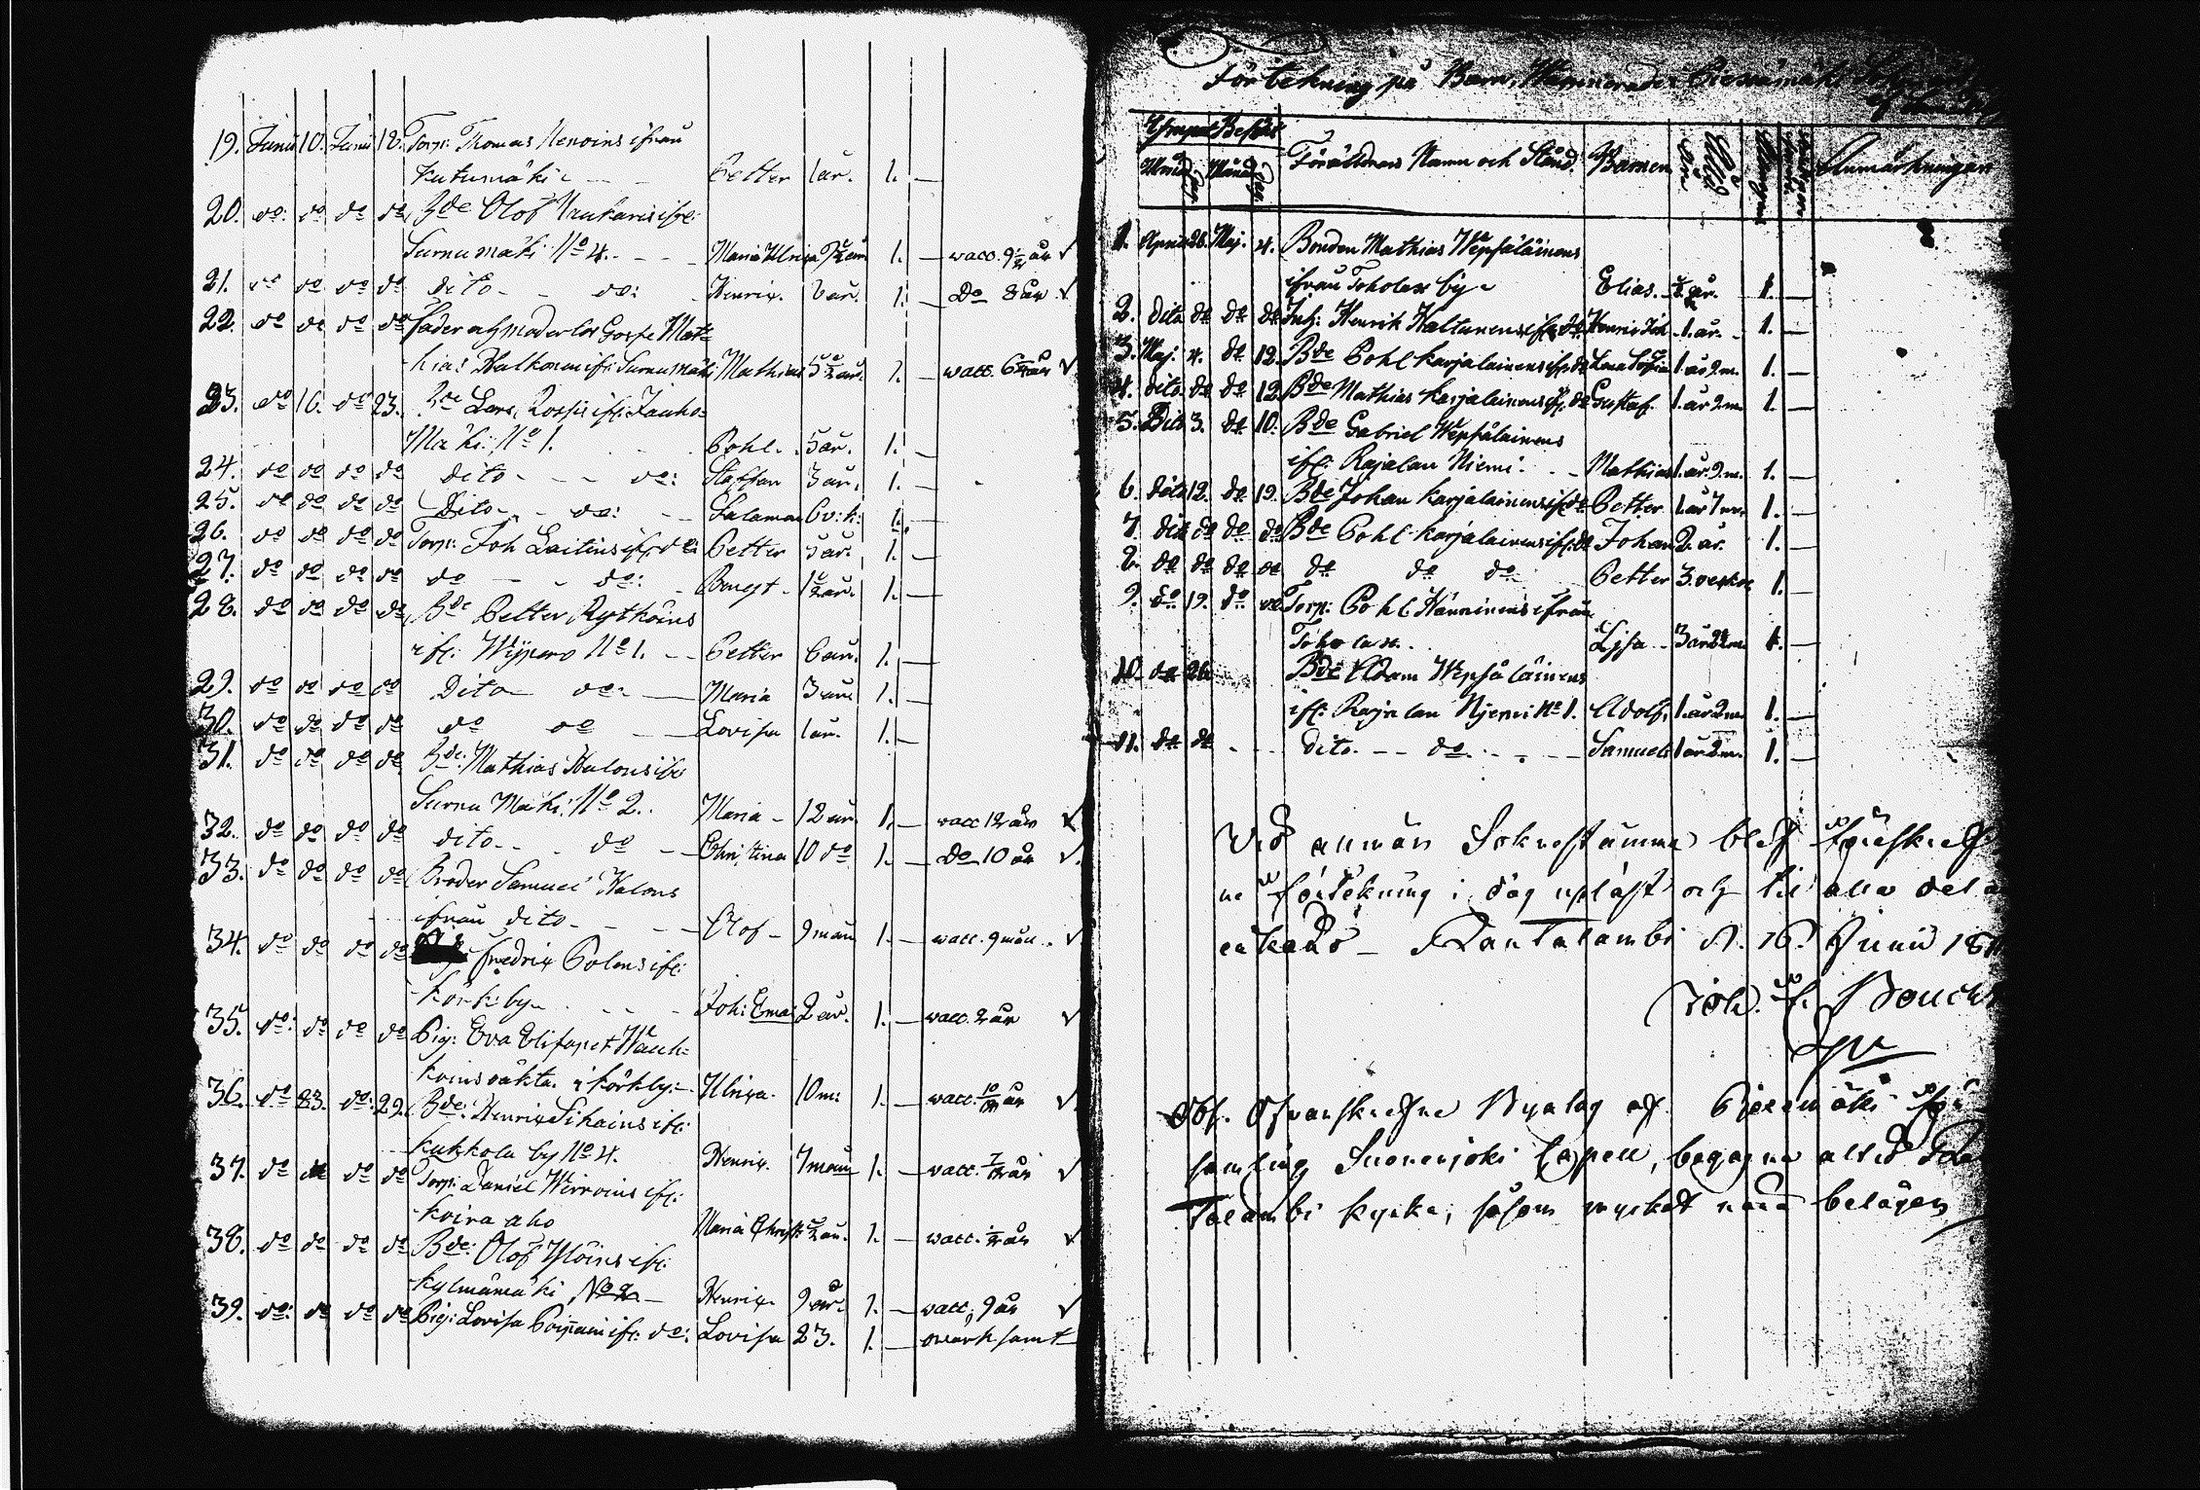 19. Junii 10. Junii 18. Torp: Thomas Nenoins ifrån
Kutumäki Petter 1 år. 1. —
20. do: do do do Bde Olof Kaukarisifr:
Surnumäki No 4. Maria Ulrica 9½ år 1. — vacc. 9½ år √
21. do do do do dito do: Henric. 8 år. 1. — Do 8 år √
22. do do do do Fader och moderlös Gosse Mat-
hias Halkonen ifr: Surnumäki Mathias 5½ år. 1. — vacc. 6½ år √
23. do 16. do 23. Bde Lars Rossis ifr: Jauho-
Mäki No 1. Pohl. 5 år. 1. —
24. do do do do dito do: Staffan 3 år. 1. —
25. do do do do Dito do: Salamon 6 v:k: 1. —
26. do do do do Torp: Joh Laitins ifr: do: Petter 5 år. 1. —
27. do do do do do do: Bengt 1½ år. 1. —
28. do do do do Bde Petter Rytköins
ifr: Wijpero No 1. Petter 6 år. 1. —
29. do do do do Dito do: Maria 3 år 1. —
30. do do do do do do Lovisa 1 år. 1. —
31. do do do do Bde: Mathias Halonsifr:
Surnu Mäki No 2. Maria 12 år. 1. — vacc 12 år √
32. do do do do dito do Christina 10 do 1. — Do 10 år √
33. do do do do Broder Samuel Halons
ifrån dito Olof 9 mån 1. — vacc. 9 mån. √
34. do do do do Fredric Polons ifr:
Körkby Joh: Ema: 2 år. 1. — vacc. 2 år √
35. do: do do do Pig: Eva Elisapet Wänh-
koins oäkta i Körkby Ulrica. 10 m: 1. — vacc. 10/12 år √
36. do 23. do: 29. Bde: Henric Sihains ifr:
Kukkola by No 4. Henric. 7 mån 1. — vacc. 7/12 år √
37. do do do do Torp: Daniel Wirroins ifr:
Koira aho Maria Christ: ½ år. 1. — vacc. ½ år √
38. do do do do Bde: Olof Ylöins ifr:
Kylmämäki No 2 Henric. 9 år. 1. — vacc. 9 år √
39. do: do do do Pig: Lovisa Poijain ifr: do: Lovisa 23. 1. — overksamt
Förtekning på Barn, Waccinerade i Piexämäki
Ympat Besökt
Månad Dag Månad Dag Föräldrars Namn och Stånd. Barnen Anmärkningar
1. April 28. Maj. 4. Bonden Mathias Wepsäläinens
ifrån Toholax by Elias. ½ år. 1. —
2. dito do do do Inh: Henrik Kaltunens ifr: do Henric Joh 1. år. 1. —
3. Maj. 4. do 12. Bde Pohl Karjalainens ifr: do Lena Sofia 1. år 9. m. 1. —
4. dito do do 12. Bde Mathias Karjalainens ifr: do Gustaf. 1. år 2. m. 1. —
5. Dito 3. do 10. Bde Gabriel Wepsäläinens
ifr: Rajalan Niemi Mathias 1. år. 9. m. 1. —
6. dito 12. do 19. Bde Johan Karjalainens ifr: do Petter 1 år 7 m. 1. —
7. dito do do do Bde Pohl Karjalainens ifr: do Johan 2. år. 1. —
8. do do do do do do do Petter 3. veckor 1. —
9. do 19. do Torp: Pohl Hänninens ifrån
Toholax. Lisa 3 år 1. —
10. do 26. Bde Adam Wepsäläinens
ifr: Rajalan Njemi No 1. Adolf. 1. år 2 m. 1. —
11. do do dito. do. Samuel 1 år 2 m. 1. —
Vid allmän Soknestämma blef föreskref
ne förtekning i dag upläst och til alla
Rautalambi d. 16. Junii
Joh. F.
Obs. Ofvanskrefne Byalag af Piexämäki
samling Suonenjoki Capell, begagna altid Rau
talambi kyrka, såsom mycket nära belägen